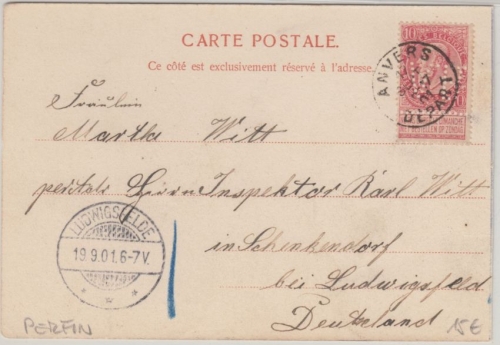 CARTE POSTALE.
Ce côté est exclusivement réservé à l'adresse.
10
ANVERS
DEPART
Fräulein
Martha Witt
per Herrn Inspektor Karl Witt
in Schenkendorf
bei Ludwigsfeld
Deutschland
LUDWIGSFELDE
19.9.01.6-7V.
* w *
PERFIN
15€